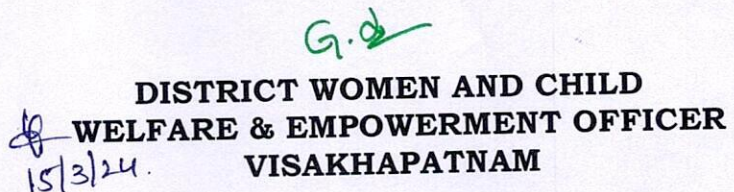 DISTRICT WOMEN AND CHILD
WELFARE & EMPOWERMENT OFFICER
15/3/24.
VISAKHAPATNAM